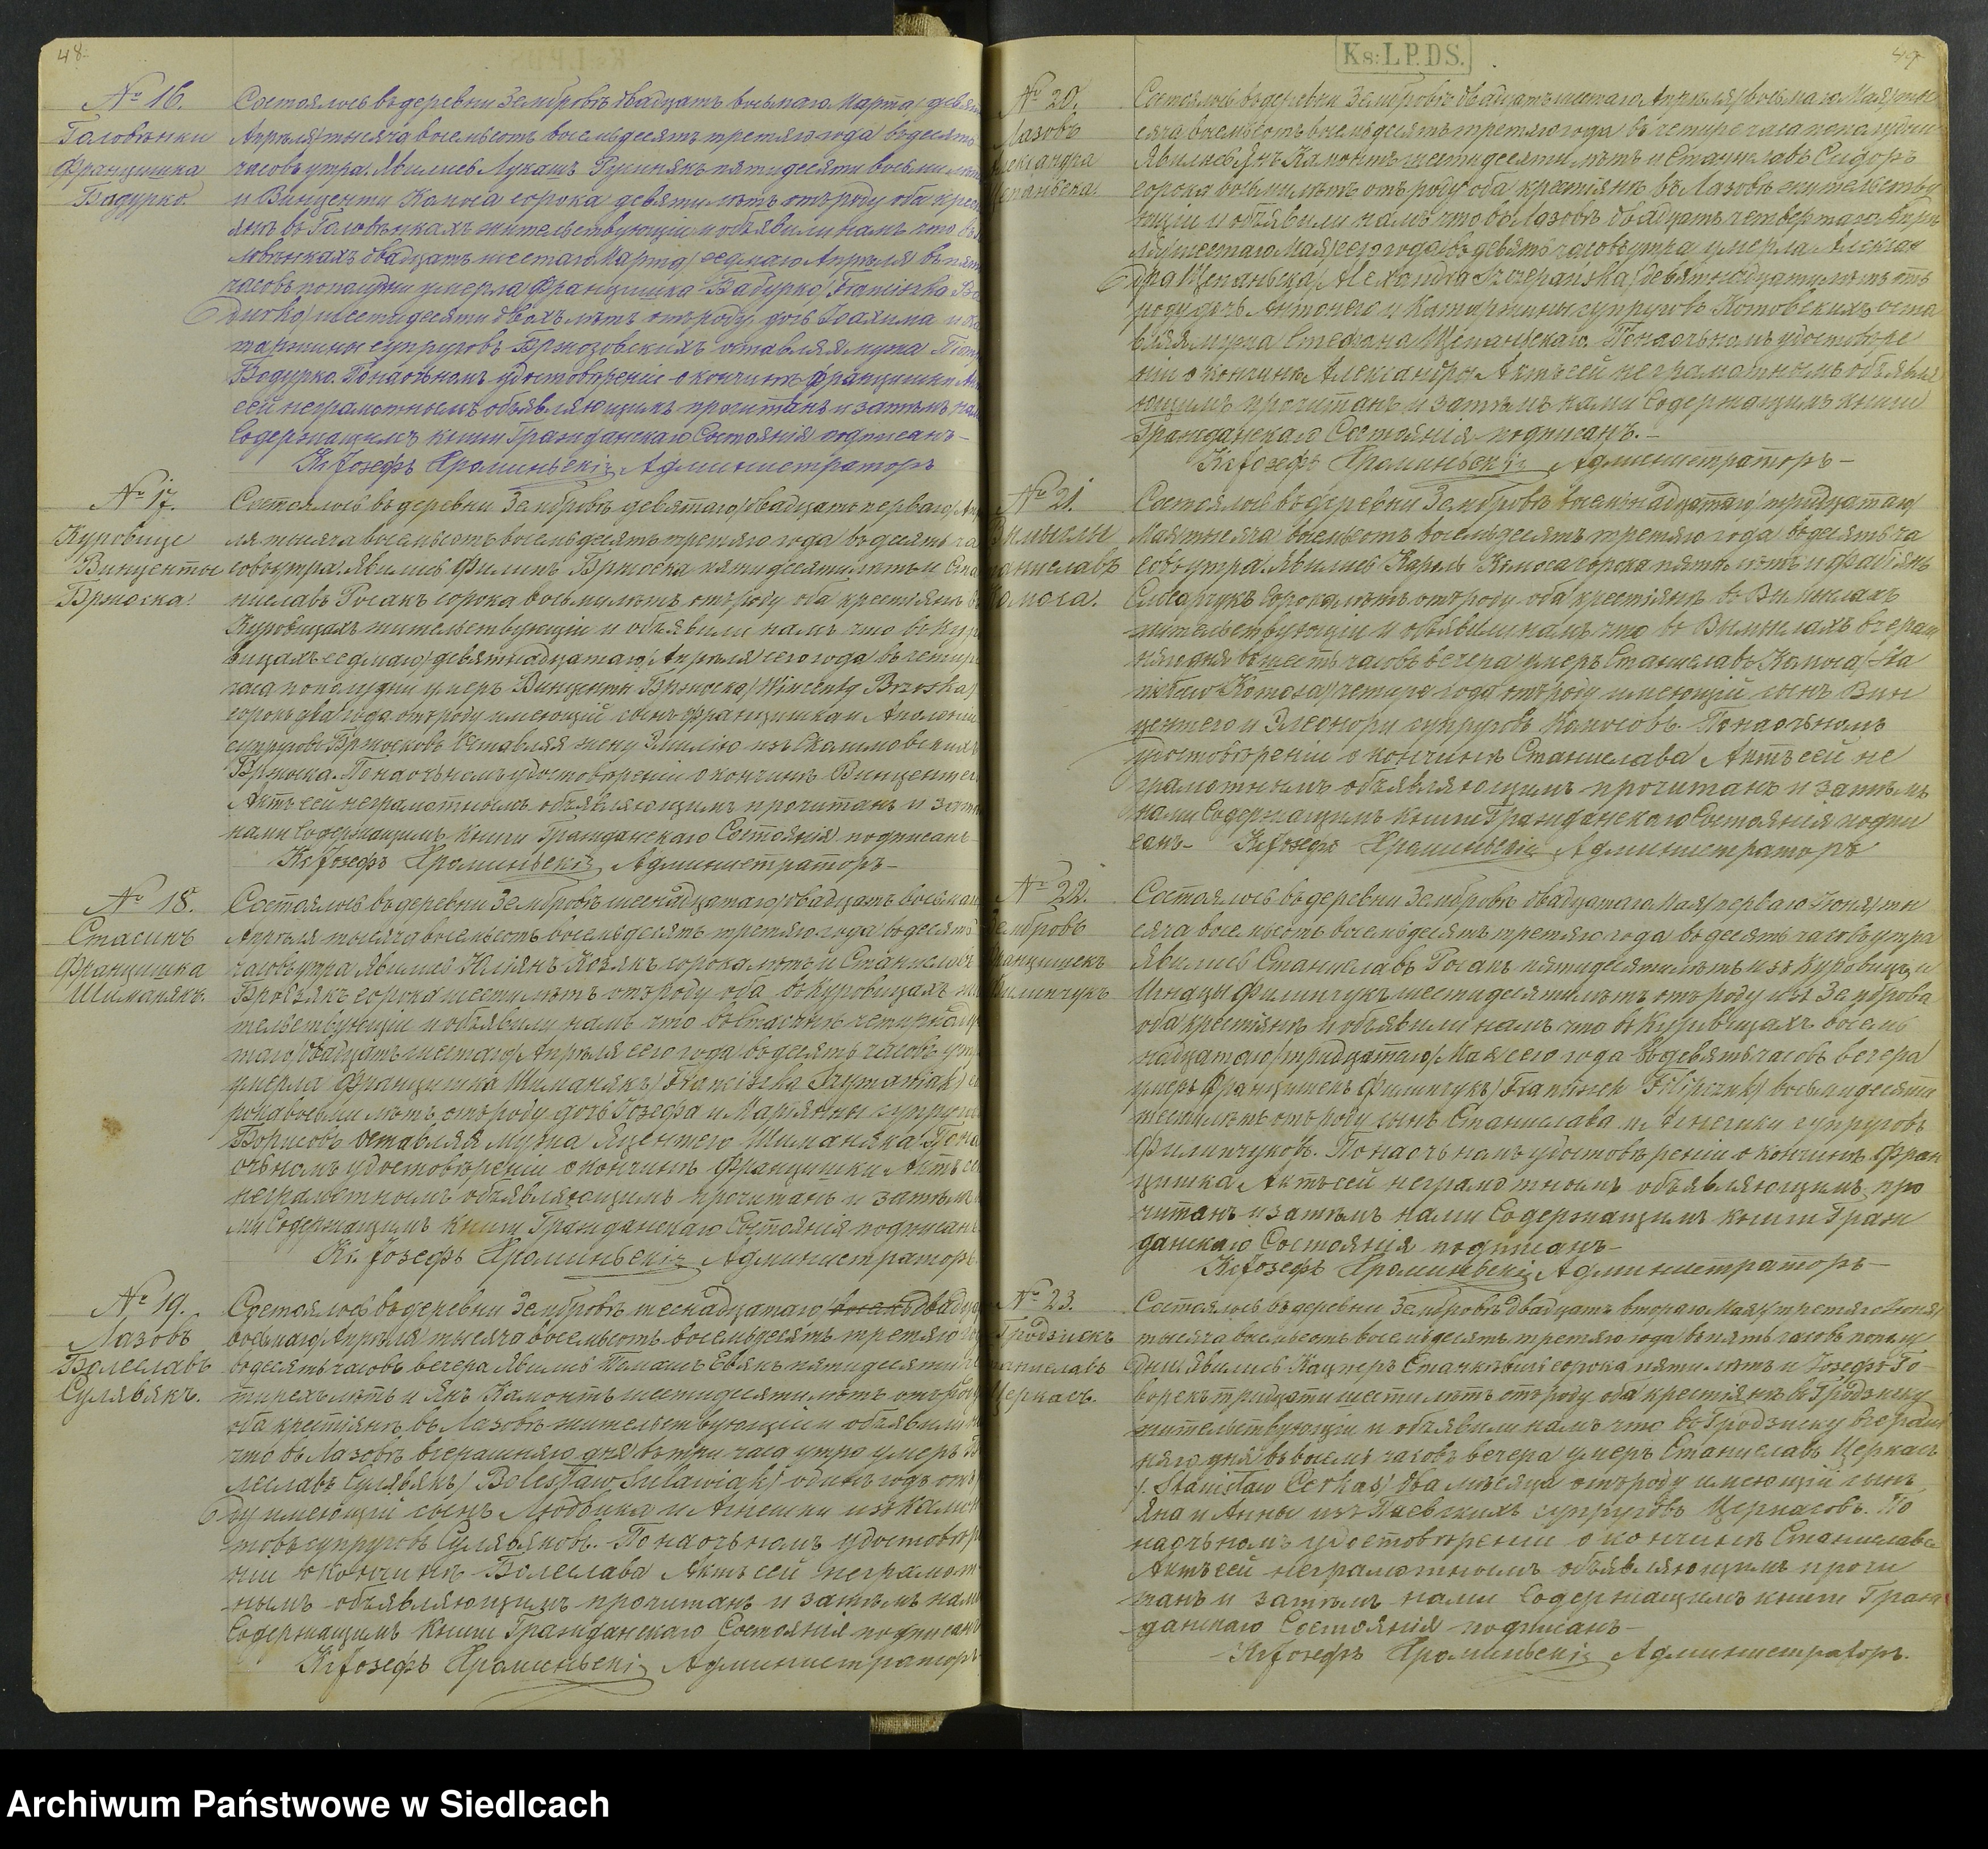 48
№ 16.
Головѣнки
Францишка
Бадурко.
Состоялось въ деревни Зембровѣ двадцать восьмаго Марта/девя
Апрѣля/тысяча восемьсотъ восемьдесятъ третяго года въ десять
часовъ утра. Явились Лукашъ Русинякъ пятидесяти восьми лѣтъ
и Винценти Комоса сорока девяти лѣтъ отъ роду оба крес
яне въ Головѣнкахъ жительствующіи и объявили намъ что въ
ловѣнкахъ двадцать шестаго Марта/седмаго Апрѣля въ пят
часовъ пополудни умерла Францишка Бадурко/Franciszka Ba
durko/шестидесяти двохъ лѣтъ отъ роду, дочь Іоахима и Ка
таржины супруговъ Бржозовскихъ оставляя мужа
Бадурко. По наочномъ удостовѣреніи о кончинѣ Францишки Ак
сей неграмотнымъ объявляющимъ прочитанъ и затѣмъ нам
Содержащимъ книги Гражданскаго Состоянія подписанъ –
Кс. Іозефъ Хроминьскій Администраторъ
№ 17.
Куровице
Винценты
Бржоска.
Состоялось въ деревни Зембровѣ девятаго/двадцать перваго/Апр
ля тысяча восемьсотъ восемьдесятъ третяго года въ десять ча
совъ утра. Явились Филипъ Бржоска пятидесяти лѣтъ и Ста
ниславъ Росакъ сорока восьми лѣтъ отъ роду оба крестіяне в
Куровицахъ жительствующіи и объявили намъ что въ Кур
вицахъ седмаго/девятнадцатаго/Апрѣля сего года въ четыре
часа пополудни умеръ Винценти Бржоска/Wincenty Brzoska/
сорокъ два года отъ роду имеющій сынъ Францишка и Аполоніи
супруговъ Бржосковъ. Оставляя жену Эмилію изъ Скалимовскихъ
Бржоска. По наочномъ удостовѣреніи о кончинѣ Винцентего
Актъ сей неграмотнымъ объявляющимъ прочитанъ и затѣм
нами Содержащимъ книги Гражданскаго Состоянія подписанъ
Кс. Іозефъ Хроминьскій Администраторъ –
№ 18.
Стасинъ
Францишка
Шиманякъ.
Состоялось въ деревни Зембровѣ шеснадцатаго/двадцать восьмаго
Апрѣля тысяча восемьсотъ восемьдесятъ третяго года въ десять
часовъ утра явились Юліянъ Козякъ сорока лѣтъ и Станиславъ
сорока шести лѣтъ отъ роду оба въ Куровицахъ жи
тельствующіи и объявили намъ что въ Стасинѣ четырнадца
таго/двадцать шестаго/Апрѣля сего года въ десять часовъ утра
умерла Францишка Шиманякъ/Franciszka Szymaniak/со
рока восьми лѣтъ отъ роду дочь Іозефа и Маріянны супругов
Борисовъ. Оставляя мужа Яцентего Шиманяка. По на
очьномъ удостовѣреніи о кончинѣ Францишки Актъ сей
неграмотнымъ объявляющимъ прочитанъ и затѣмъ на
ми Содержащимъ книги Гражданскаго Состоянія подписанъ
Кс. Іозефъ Хроминьскій Администраторъ.
№ 19.
Лазовъ
Болеславъ
Сулявякъ.
Состоялось въ деревни Зембровѣ шеснадцатаго восемь двадцать
восьмаго/Апрѣля/тысяча восемьсотъ восемьдесятъ третяго го
въ десять часовъ вечера явились Томашъ Евякъ пятидесяти че
тырехъ лѣтъ и Янъ Камонтъ шестидесяти лѣтъ отъ роду
оба крестіяне въ Лазовѣ жительствующіи и объявили на
что въ Лазовѣ вчерашняго дня въ три часа утра умеръ Бо
леславъ Сулявякъ/Bolesław Sulawiak/одинъ годъ отъ ро
ду имеющій сынъ Людвика и Агнешки изъ Камон
товъ супруговъ Сулявяковъ. По наочьномъ удостовѣре
ніи о кончинѣ Болеслава Актъ сей неграмот
нымъ объявляющимъ прочитанъ и затѣмъ нами
Содержащимъ книги Гражданскаго Состоянія подписанъ
Кс. Іозефъ Хроминьскій Администраторъ
Ks: L.P.D S.
49
№ 20.
Лазовъ
лександра
Щепаньска.
Состоялось въ деревни Зембровѣ двадцать шестаго Апрѣля/восьмаго Мая/ты
сяча восемьсотъ восемьдесятъ третяго года въ четыре часа пополудни
Явились Янъ Камонтъ шестидесяти лѣтъ и Станиславъ Сидоръ
сорока восьми лѣтъ отъ роду оба крестіяне въ Лазовѣ жительству
ющіи и объявили намъ что въ Лазовѣ двадцать четвертаго Апрѣ
ля/шестаго Мая/сего года въ девять часовъ утра умерла Алексан
дра Щепаньска/Alexandra Szczepańska/девятнадцати лѣтъ отъ
роду дочь Антонего и Катаржины супруговъ Котовскихъ оста
вляя мужа Стефана Щепаньскаго. По наочьномъ удостовѣре
ніи о кончинѣ Александры Актъ сей неграмотнымъ объявля
ющимъ прочитанъ и затѣмъ нами Содержащимъ книги
Гражданскаго Состоянія подписанъ. –
Кс. Іозефъ Хроминьскій Администраторъ –
№ 21.
Вимыслы
таниславъ
Комоса.
Состоялось въ деревни Зембровѣ восемнадцатаго/тридцатаго/
Мая тысяча восемьсотъ восемьдесятъ третяго года въ десять ча
совъ утра. Явились Кароль Комоса сорока пяти лѣтъ и Фабіянъ
сорока лѣтъ отъ роду оба крестіяне въ Вимыслахъ
жительствующіи и объявили намъ что въ Вимыслахъ вчераш
няго дня въ шесть часовъ вечера умеръ Станиславъ Комоса/Sta
nisław Komosa/четыре года отъ роду имеющій сынъ Вин
центего и Элеоноры супруговъ Комосовъ. По наочьномъ
удостовѣреніи о кончинѣ Станислава Актъ сей не
грамотнымъ объявляющимъ прочитанъ и затѣмъ
нами Содержащимъ книги Гражданскаго Состоянія подпи
санъ – Кс. Іозефъ Хроминьскій Администраторъ
№ 22.
Зембровъ
Францишекъ
Филипчукъ
Состоялось въ деревни Зембровѣ двадцатаго Мая/перваго Іюня/ты
сяча восемьсотъ восемьдесятъ третяго года въ десять часовъ утра
Явились Станиславъ Росакъ пятидесяти лѣтъ изъ Куровицъ и
Игнацы Филипчукъ шестидесяти лѣтъ отъ роду изъ Земброва
оба крестіяне и объявили намъ что въ Куровицахъ восем
надцатаго/тридцатаго/Мая сего года въ девять часовъ вечера
умеръ Францишекъ Филипчукъ/Franciszek Filipczuk/восьмидесяти
шести лѣтъ отъ роду сынъ Станислава и Агнешки супруговъ
Филипчуковъ. По наочьномъ удостовѣреніи о кончинѣ Фран
цишка Актъ сей неграмотнымъ объявляющимъ про
читанъ и затѣмъ нами Содержащимъ книги Граж
данскаго Состоянія подписанъ –
Кс. Іозефъ Хроминьскій Администраторъ –
№ 23.
Гродзискъ
таниславъ
Церкасъ.
Состоялось въ деревни Зембровѣ двадцать втораго Мая/третяго Іюня/
тысяча восемьсотъ восемьдесятъ третяго года въ пять часовъ пополу
дни. Явились Кацперъ сорока пяти лѣтъ и Іозефъ Го-
ворекъ тридцати шести лѣтъ отъ роду оба крестіяне въ Гродзиску
жительствующіи и объявили намъ что въ Гродзиску вчераш
няго дня въ восемь часовъ вечера умеръ Станиславъ Церкасъ
/Stanisław Cerkas/два мѣсяца отъ роду имеющій сынъ
Яна и Анны изъ супруговъ Церкасовъ. По
наочьномъ удостовѣреніи о кончинѣ Станислава
Актъ сей неграмотнымъ объявляющимъ прочи
танъ и затѣмъ нами Содержащимъ книги Граж
данскаго Состоянія подписанъ –
Кс. Іозефъ Хроминьскій Администраторъ.
Archiwum Państwowe w Siedlcach